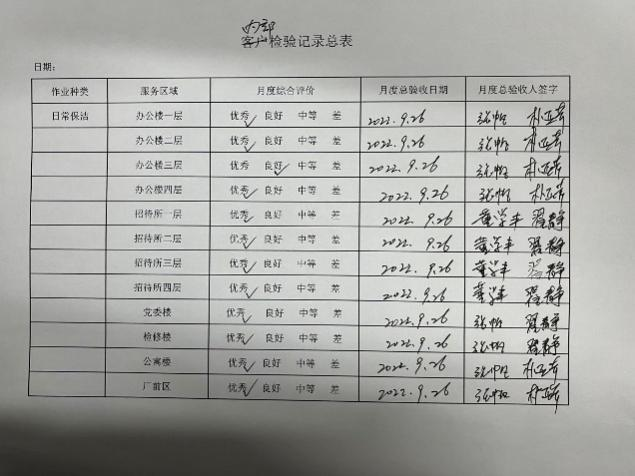 内部
客户检验记录总表
日期:
作业种类 服务区域 月度综合评价 月度总验收日期 月度总验收人签字
日常保洁 办公楼一层 优秀✓ 良好 中等 差 2022.9.26
办公楼二层 优秀✓ 良好 中等 差 2022.9.26
办公楼三层 优秀 良好✓ 中等 差 2022.9.26
办公楼四层 优秀✓ 良好 中等 差 2022.9.26
招待所一层 优秀✓ 良好 中等 差 2022.9.26 董学丰
招待所二层 优秀✓ 良好 中等 差 2022.9.26 董学丰
招待所三层 优秀✓ 良好 中等 差 2022.9.26 董学丰
招待所四层 优秀✓ 良好 中等 差 2022.9.26 董学丰
党委楼 优秀✓ 良好 中等 差 2022.9.26
检修楼 优秀✓ 良好 中等 差 2022.9.26
公寓楼 优秀✓ 良好 中等 差 2022.9.26
厂前区 优秀✓ 良好 中等 差 2022.9.26